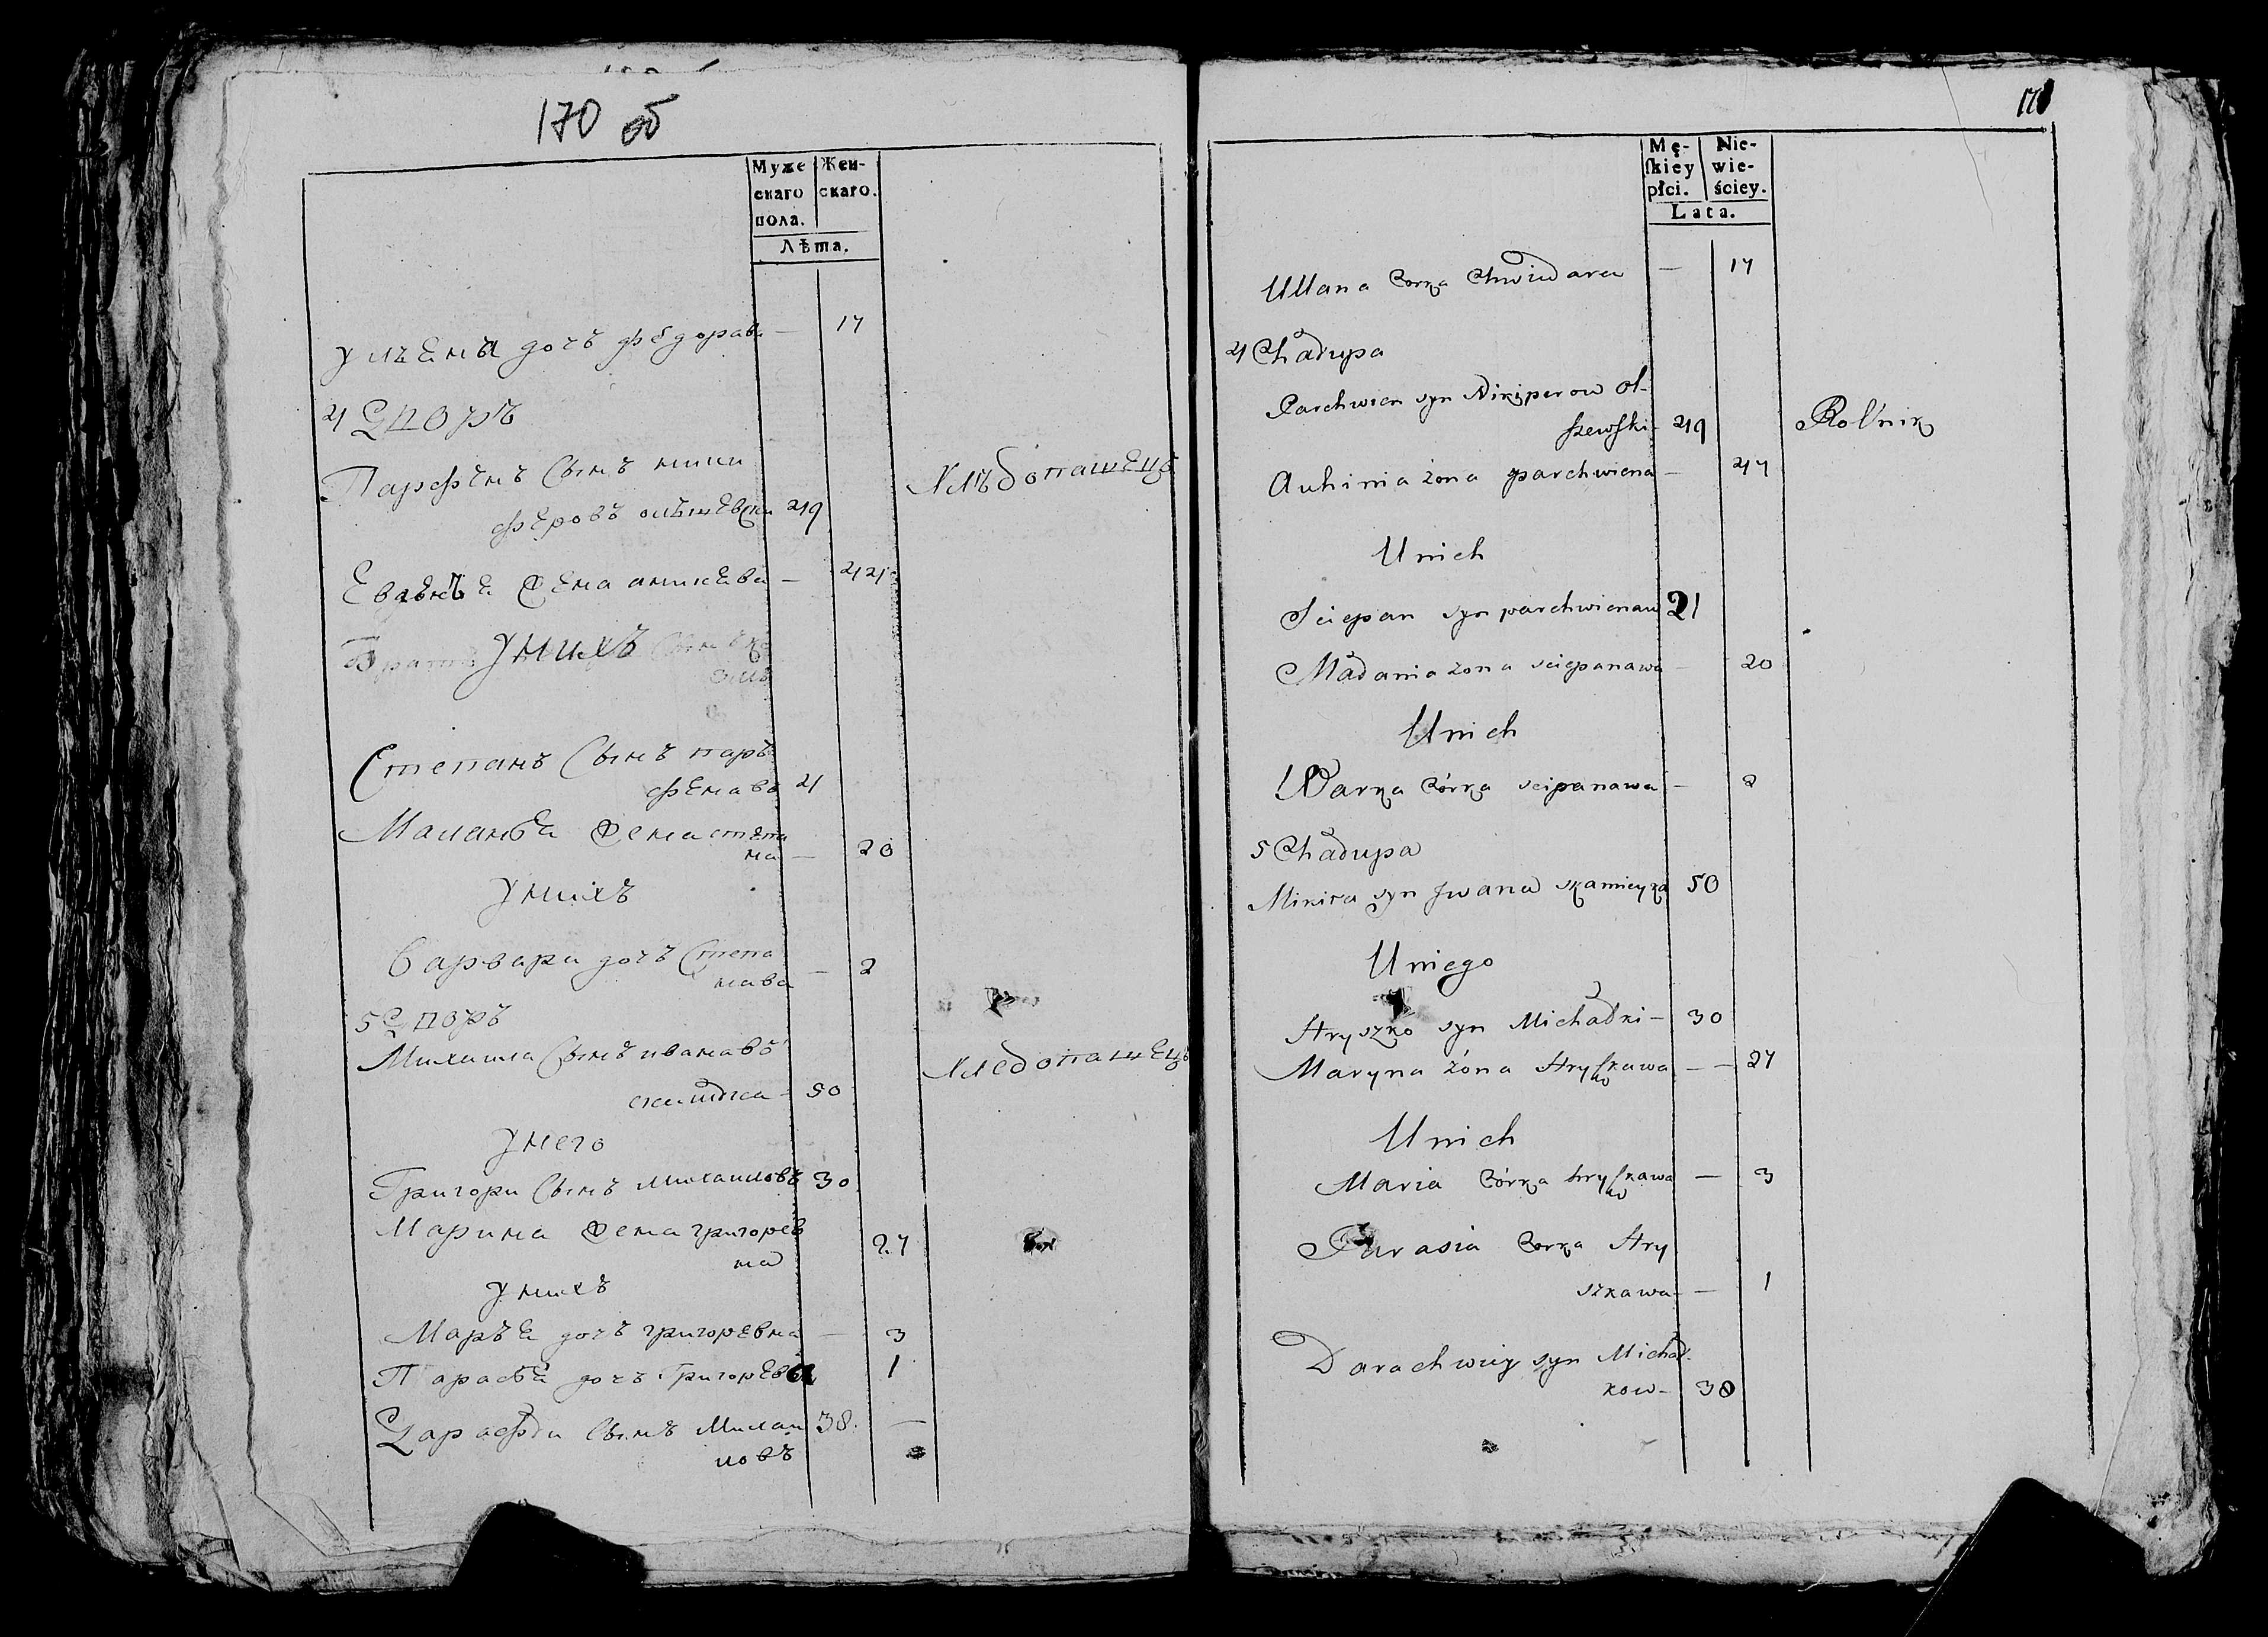 170 об
Муже
скаго
пола.
Жен-
скаго.
Лѣта.
Ульена дочь федорава — 17
4 Дворъ
Парфенъ Сынъ ники
феровъ олшевски 49
Хлѣбопашецъ
жена — 44
Братъ Унихъ Сынъ
Степанъ Сынъ парь
фенавъ 21
Маланья жена степа
на — 20
Унихъ
Варвара дочъ Степа
нава — 2
5 Дворъ
Михаила Сынъ ивановъ
50
Хлебопашецъ
Унего
Григори Сынъ михаиловъ 30
Марина жена григорев
на 27
Унихъ
Маръя дочъ григоревна — 3
Парасья дочъ Григорева 1
Дарафѣи Сынъ Михаи 38. —
ловъ
171
Mę-
ſkiey
płci.
Nie-
wie-
ściey.
Lata.
Ullana Corka Chwiedara — 17
4 Chałupa
Parchwien syn Nikiperow Ol-
szewſki - 49
Rolnik
Auhinia żona parchwiena — 47
Unich
Sciepan syn parchwienaw 21
Małania zona sciepanawa — 20
Unich
Warka Córka scipanawa — 2
5 Chałupa
Mikita syn Jwana skamieyka 50
Uniego
Hryszko syn Michałki — 30
Maryna żóna Hryſkawa — — 27
Unich
Maria Córka hryſkawa — 3
Parasia Corka Hry
szkawa — — 1
Darachwiey syn Michał-
kow — 38